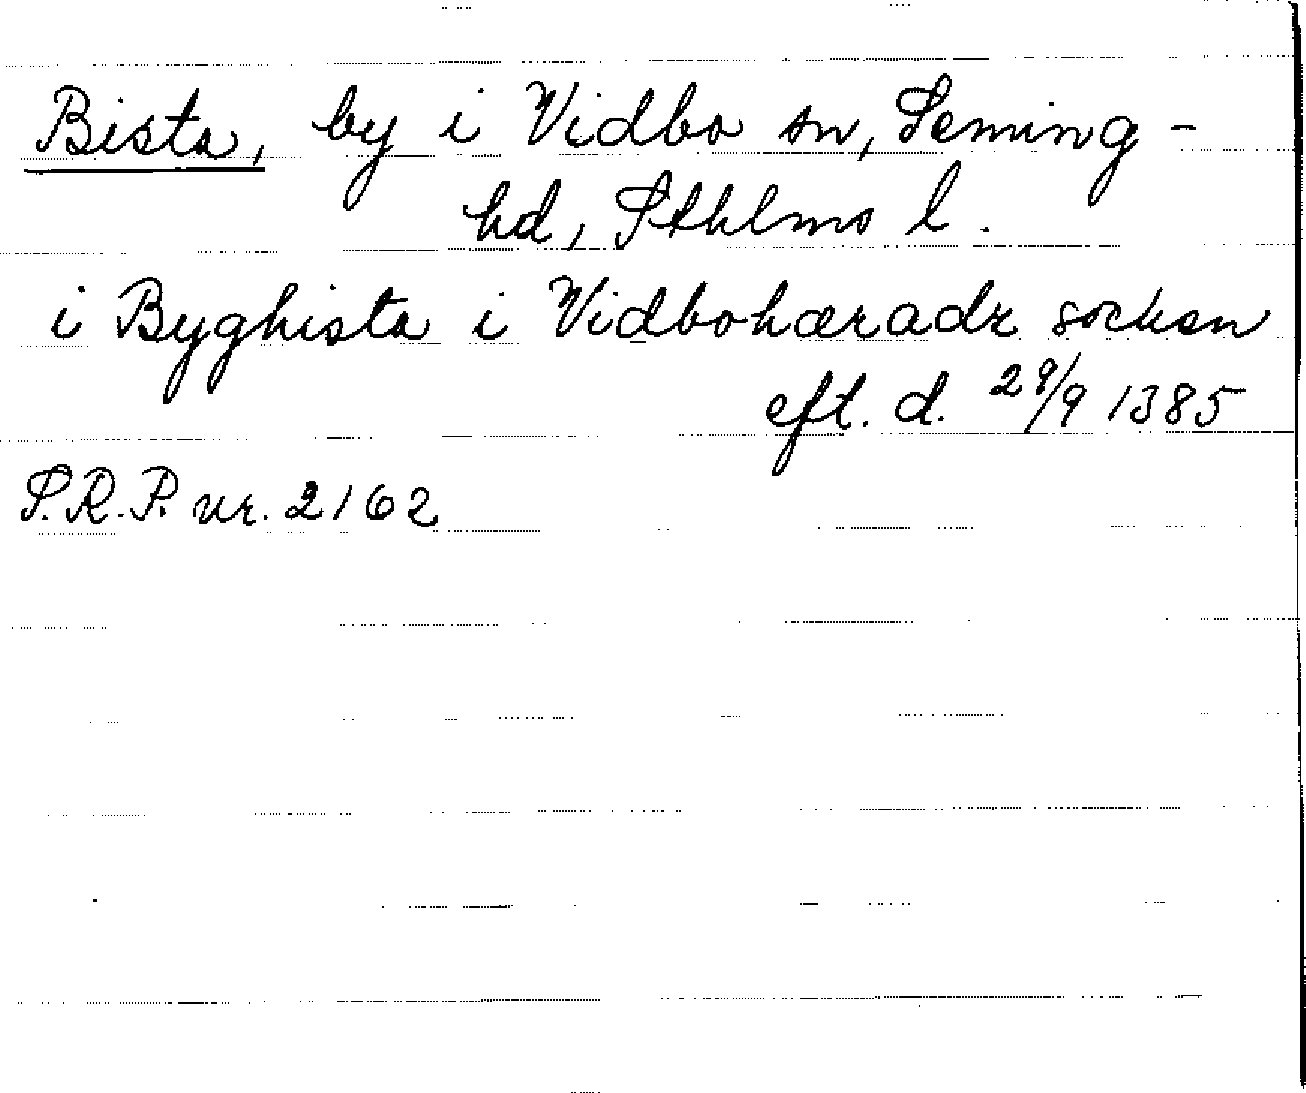 Bista, by i Vidbo sn, Seming-
hd, Sthlms l.
i Byghista i Vidbohæradz socken
eft. d. 29/9 1385
S.R.P. nr. 2162